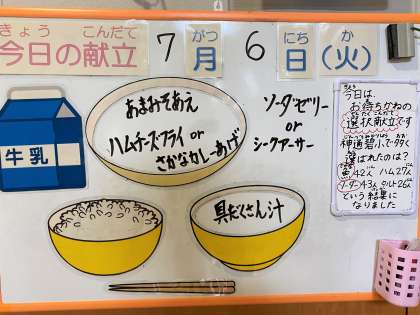 きょう こんだて
今日の献立
7
がつ
月
6
にち
日
か
(火)
牛乳
あまみそあえ
ハムチーズフライ or
さかなカレーあげ
ソーダゼリー
or
シークアーサー
具だくさん汁
今日は、
お待ちかねの
選択献立です
神通碧小で多く
選ばれたのは?
魚 42人 ハム 27人
ソーダー 43人 タルト 26人
という結果に
なりました